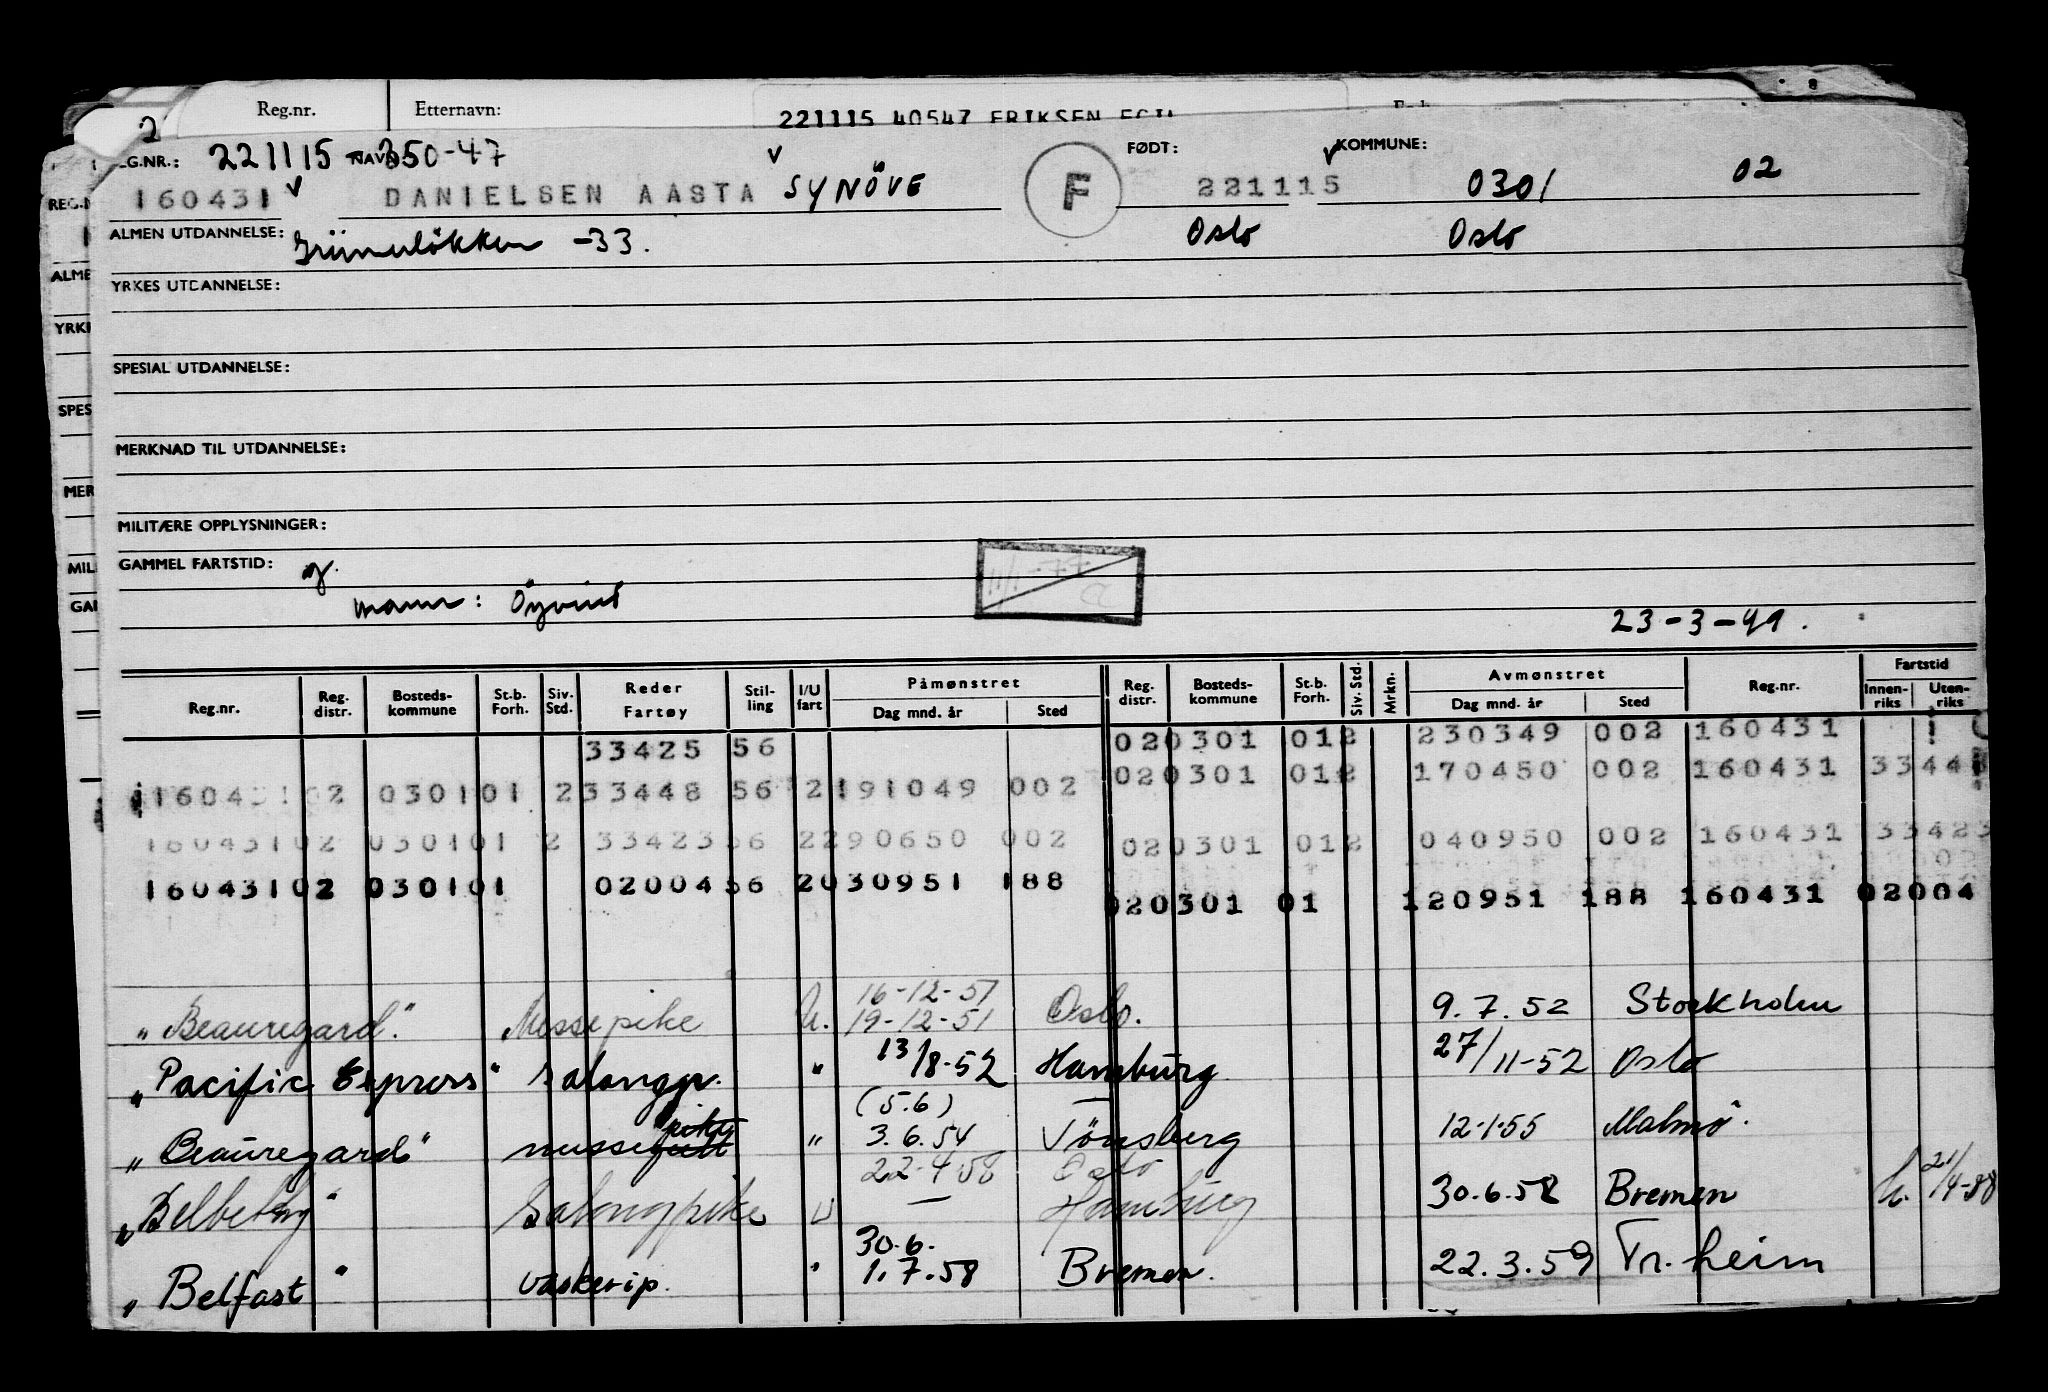 Reg.nr. Etternavn: 221115 40547 ERIKSEN EGIL
2
REG.NR.: 221115 350-47 FØDT: KOMMUNE:
160431 DANIELSEN AASTA SYNÖVE F 221115 0301 02
ALMEN UTDANNELSE: Grünerlökken -33. Oslo Oslo
YRKES UTDANNELSE:
SPESIAL UTDANNELSE:
MERKNAD TIL UTDANNELSE:
MILITÆRE OPPLYSNINGER:
GAMMEL FARTSTID: g. 11/1-77
mann: Öyvind 23-3-49.
Reg.nr. Reg. distr. Bosteds-kommune St.b. Forh. Siv. Std. Reder Fartøy Stil-ling I/U fart Påmønstret Dag mnd. år Sted Reg. distr. Bosteds-kommune St.b. Forh. Siv. Std. Mrkn. Avmønstret Dag mnd. år Sted Reg.nr. Fartstid Innen-riks Uten-riks
33425 56 020301 012 230349 002 160431
160431 02 0301 01 2 33448 56 2 191049 002 020301 012 170450 002 160431 3344
160431 02 0301 01 2 33423 56 2 290650 002 020301 012 040950 002 160431 33423
160431 02 0301 01 02004 56 2 030951 188 020301 01 120951 188 160431 02004
16-12-51
"Beauregard." Messepike U. 19-12-51 Oslo. 9.7.52 Stockholm
"Pacific Express" salongp. " 13/8-52 Hamburg 27/11-52 Oslo
(5.6)
"Beauregard" messepike " 3.6.54 Tönsberg 12.1.55 Malmö.
22.4.58 Oslo
Salongpike U — Hamburg 30.6.58 Bremen 21/4-58
30.6.
"Belfast" vaskerip. " 1.7.58 Bremen. 22.3.59 Tr.heim